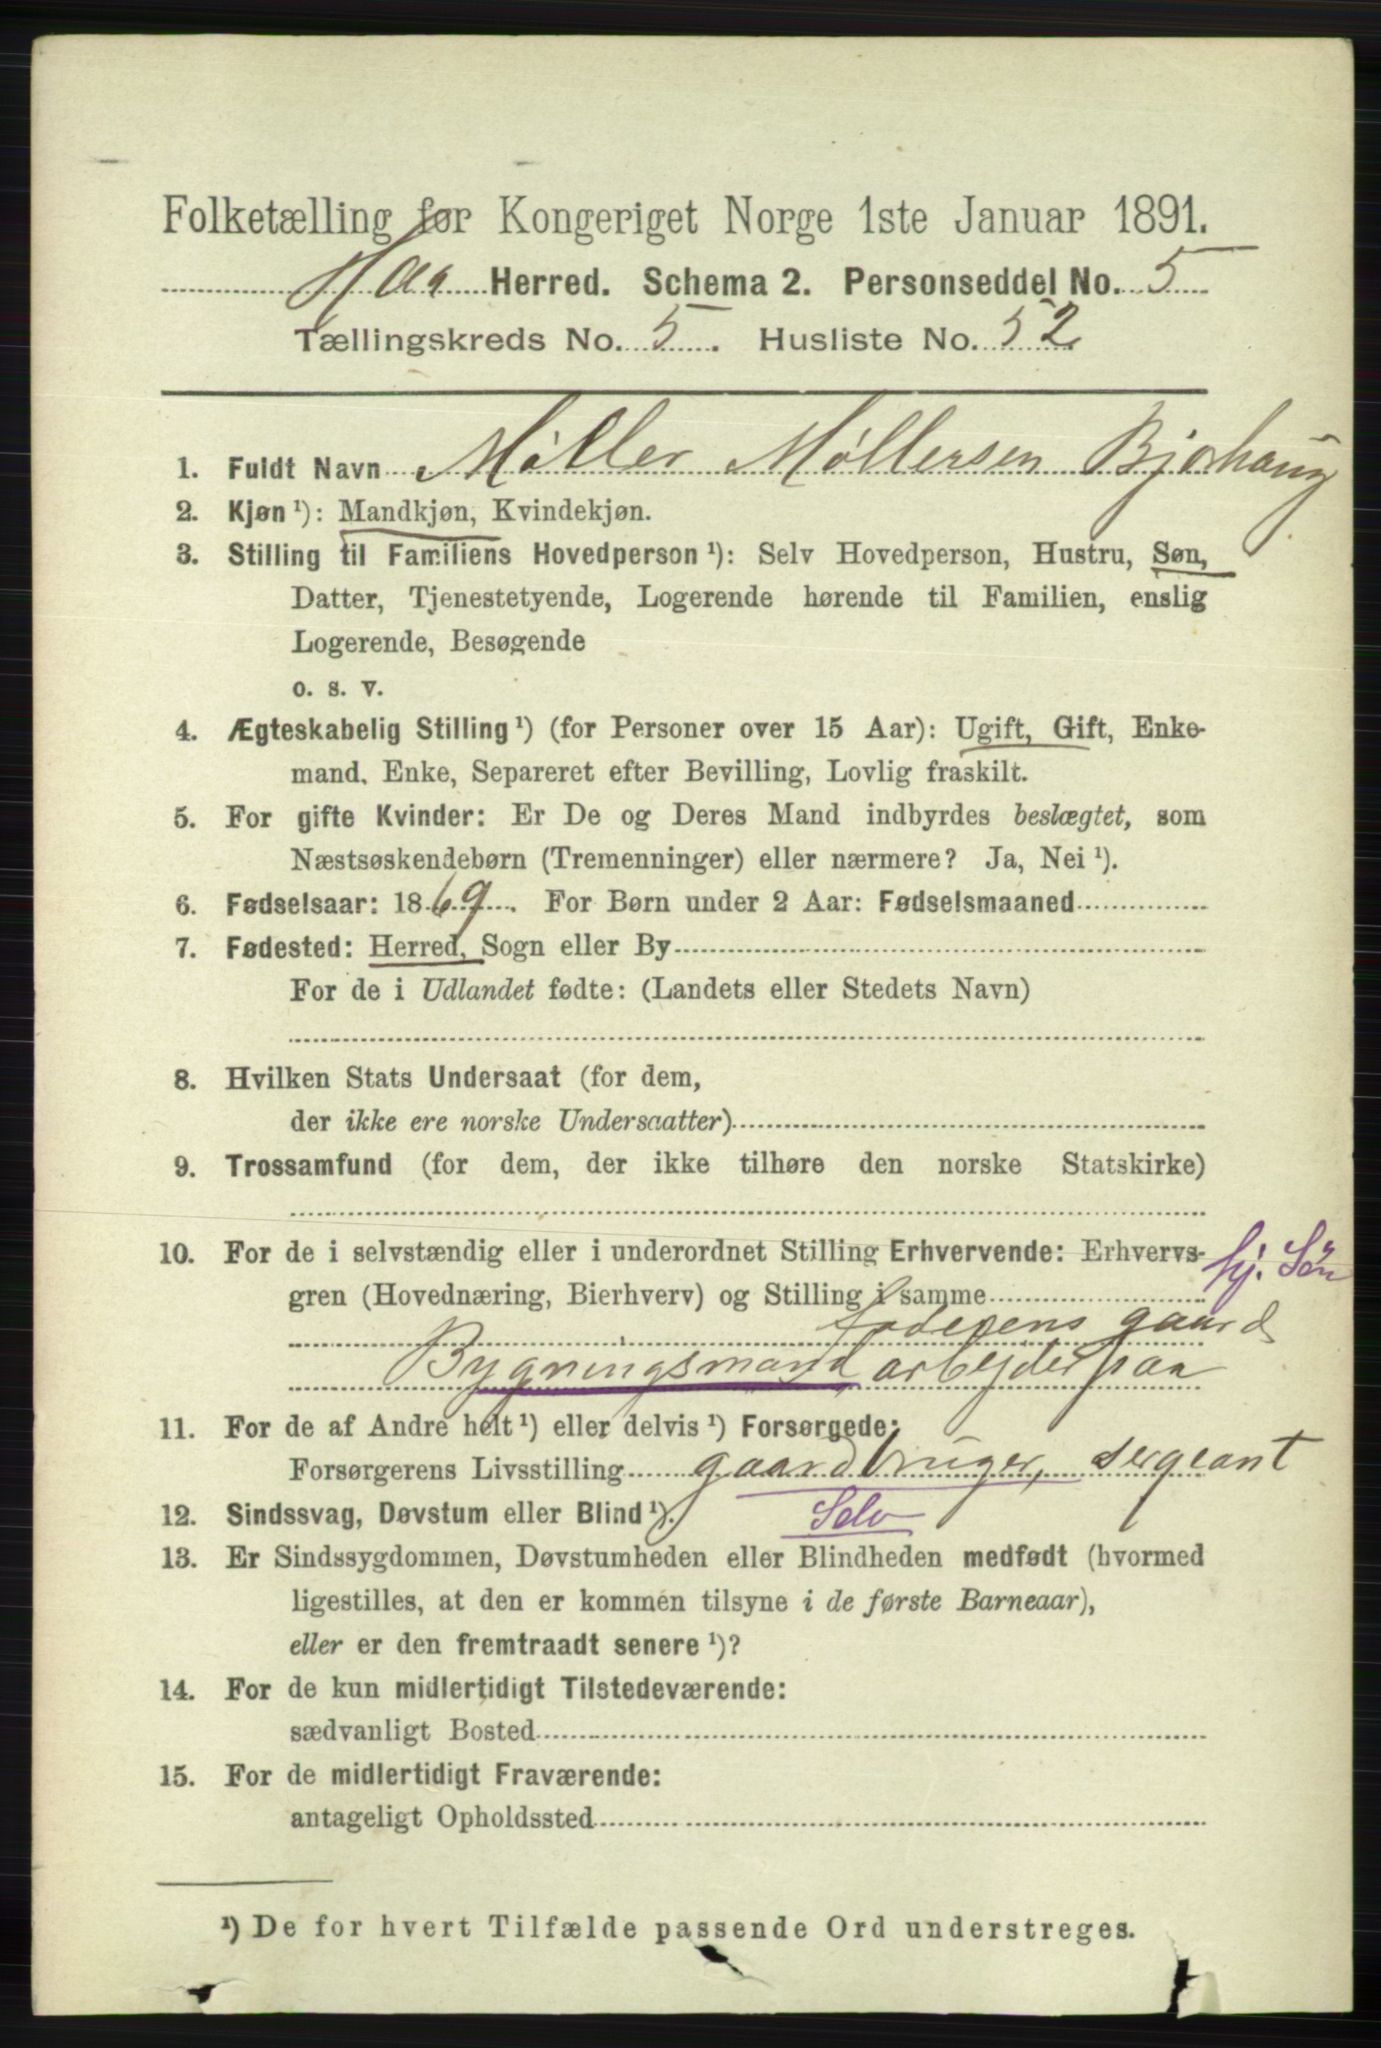 Folketælling for Kongeriget Norge 1ste Januar 1891.
Haa Herred. Schema 2. Personseddel No. 5
Tællingskreds No. 5. Husliste No. 52
1. Fuldt Navn Møller Møllersen Bjorhaug
2. Kjøn ¹): Mandkjøn, Kvindekjøn.
3. Stilling til Familiens Hovedperson ¹): Selv Hovedperson, Hustru, Søn,
Datter, Tjenestetyende, Logerende hørende til Familien, enslig
Logerende, Besøgende
o. s. v.
4. Ægteskabelig Stilling ¹) (for Personer over 15 Aar): Ugift, Gift, Enke-
mand, Enke, Separeret efter Bevilling, Lovlig fraskilt.
5. For gifte Kvinder: Er De og Deres Mand indbyrdes beslægtet, som
Næstsøskendebørn (Tremenninger) eller nærmere? Ja, Nei ¹).
6. Fødselsaar: 1869. For Børn under 2 Aar: Fødselsmaaned
7. Fødested: Herred, Sogn eller By
For de i Udlandet fødte: (Landets eller Stedets Navn)
8. Hvilken Stats Undersaat (for dem,
der ikke ere norske Undersaatter)
9. Trossamfund (for dem, der ikke tilhøre den norske Statskirke)
10. For de i selvstændig eller i underordnet Stilling Erhvervende: Erhvervs-
hj. Søn
gren (Hovednæring, Bierhverv) og Stilling i samme
foderens gaard
Bygningsmand arbejder paa
11. For de af Andre helt ¹) eller delvis ¹) Forsørgede:
Forsørgerens Livsstilling gaardbruger, sergeant
12. Sindssvag, Døvstum eller Blind ¹). Selv
13. Er Sindssygdommen, Døvstumheden eller Blindheden medfødt (hvormed
ligestilles, at den er kommen tilsyne i de første Barneaar),
eller er den fremtraadt senere ¹)?
14. For de kun midlertidigt Tilstedeværende:
sædvanligt Bosted
15. For de midlertidigt Fraværende:
antageligt Opholdssted
¹) De for hvert Tilfælde passende Ord understreges.